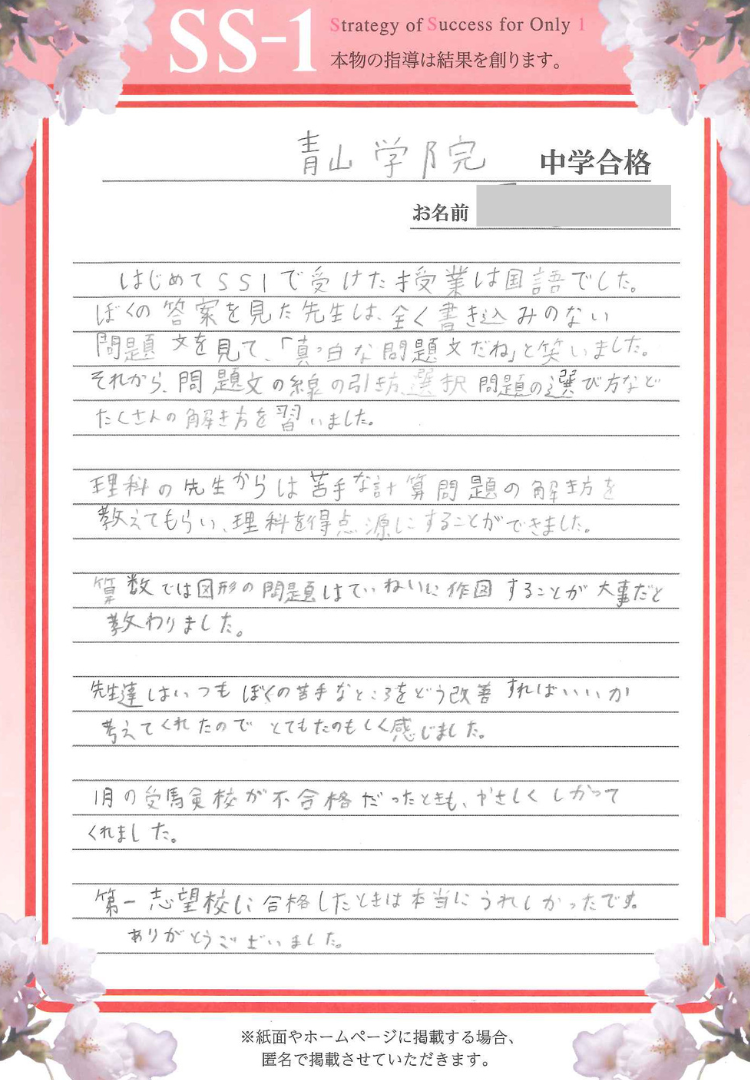 SS-1
Strategy of Success for Only 1
本物の指導は結果を創ります。
青山学院 中学合格
お名前
はじめてSS1で受けた授業は国語でした。
ぼくの答案を見た先生は、全く書き込みのない
問題文を見て、「真っ白な問題文だね」と笑いました。
それから、問題文の線の引き方、選択問題の選び方など
たくさんの解き方を習いました。
理科の先生からは苦手な計算問題の解き方を
教えてもらい、理科を得点源にすることができました。
算数では図形の問題はていねいに作図することが大事だと
教わりました。
先生達はいつもぼくの苦手なところをどう改善すればいいか
考えてくれたのでとてもたのもしく感じました。
1月の受験校が不合格だったときも、やさしくしかって
くれました。
第一志望校に合格したときは本当にうれしかったです。
ありがとうございました。
※紙面やホームページに掲載する場合、
匿名で掲載させていただきます。